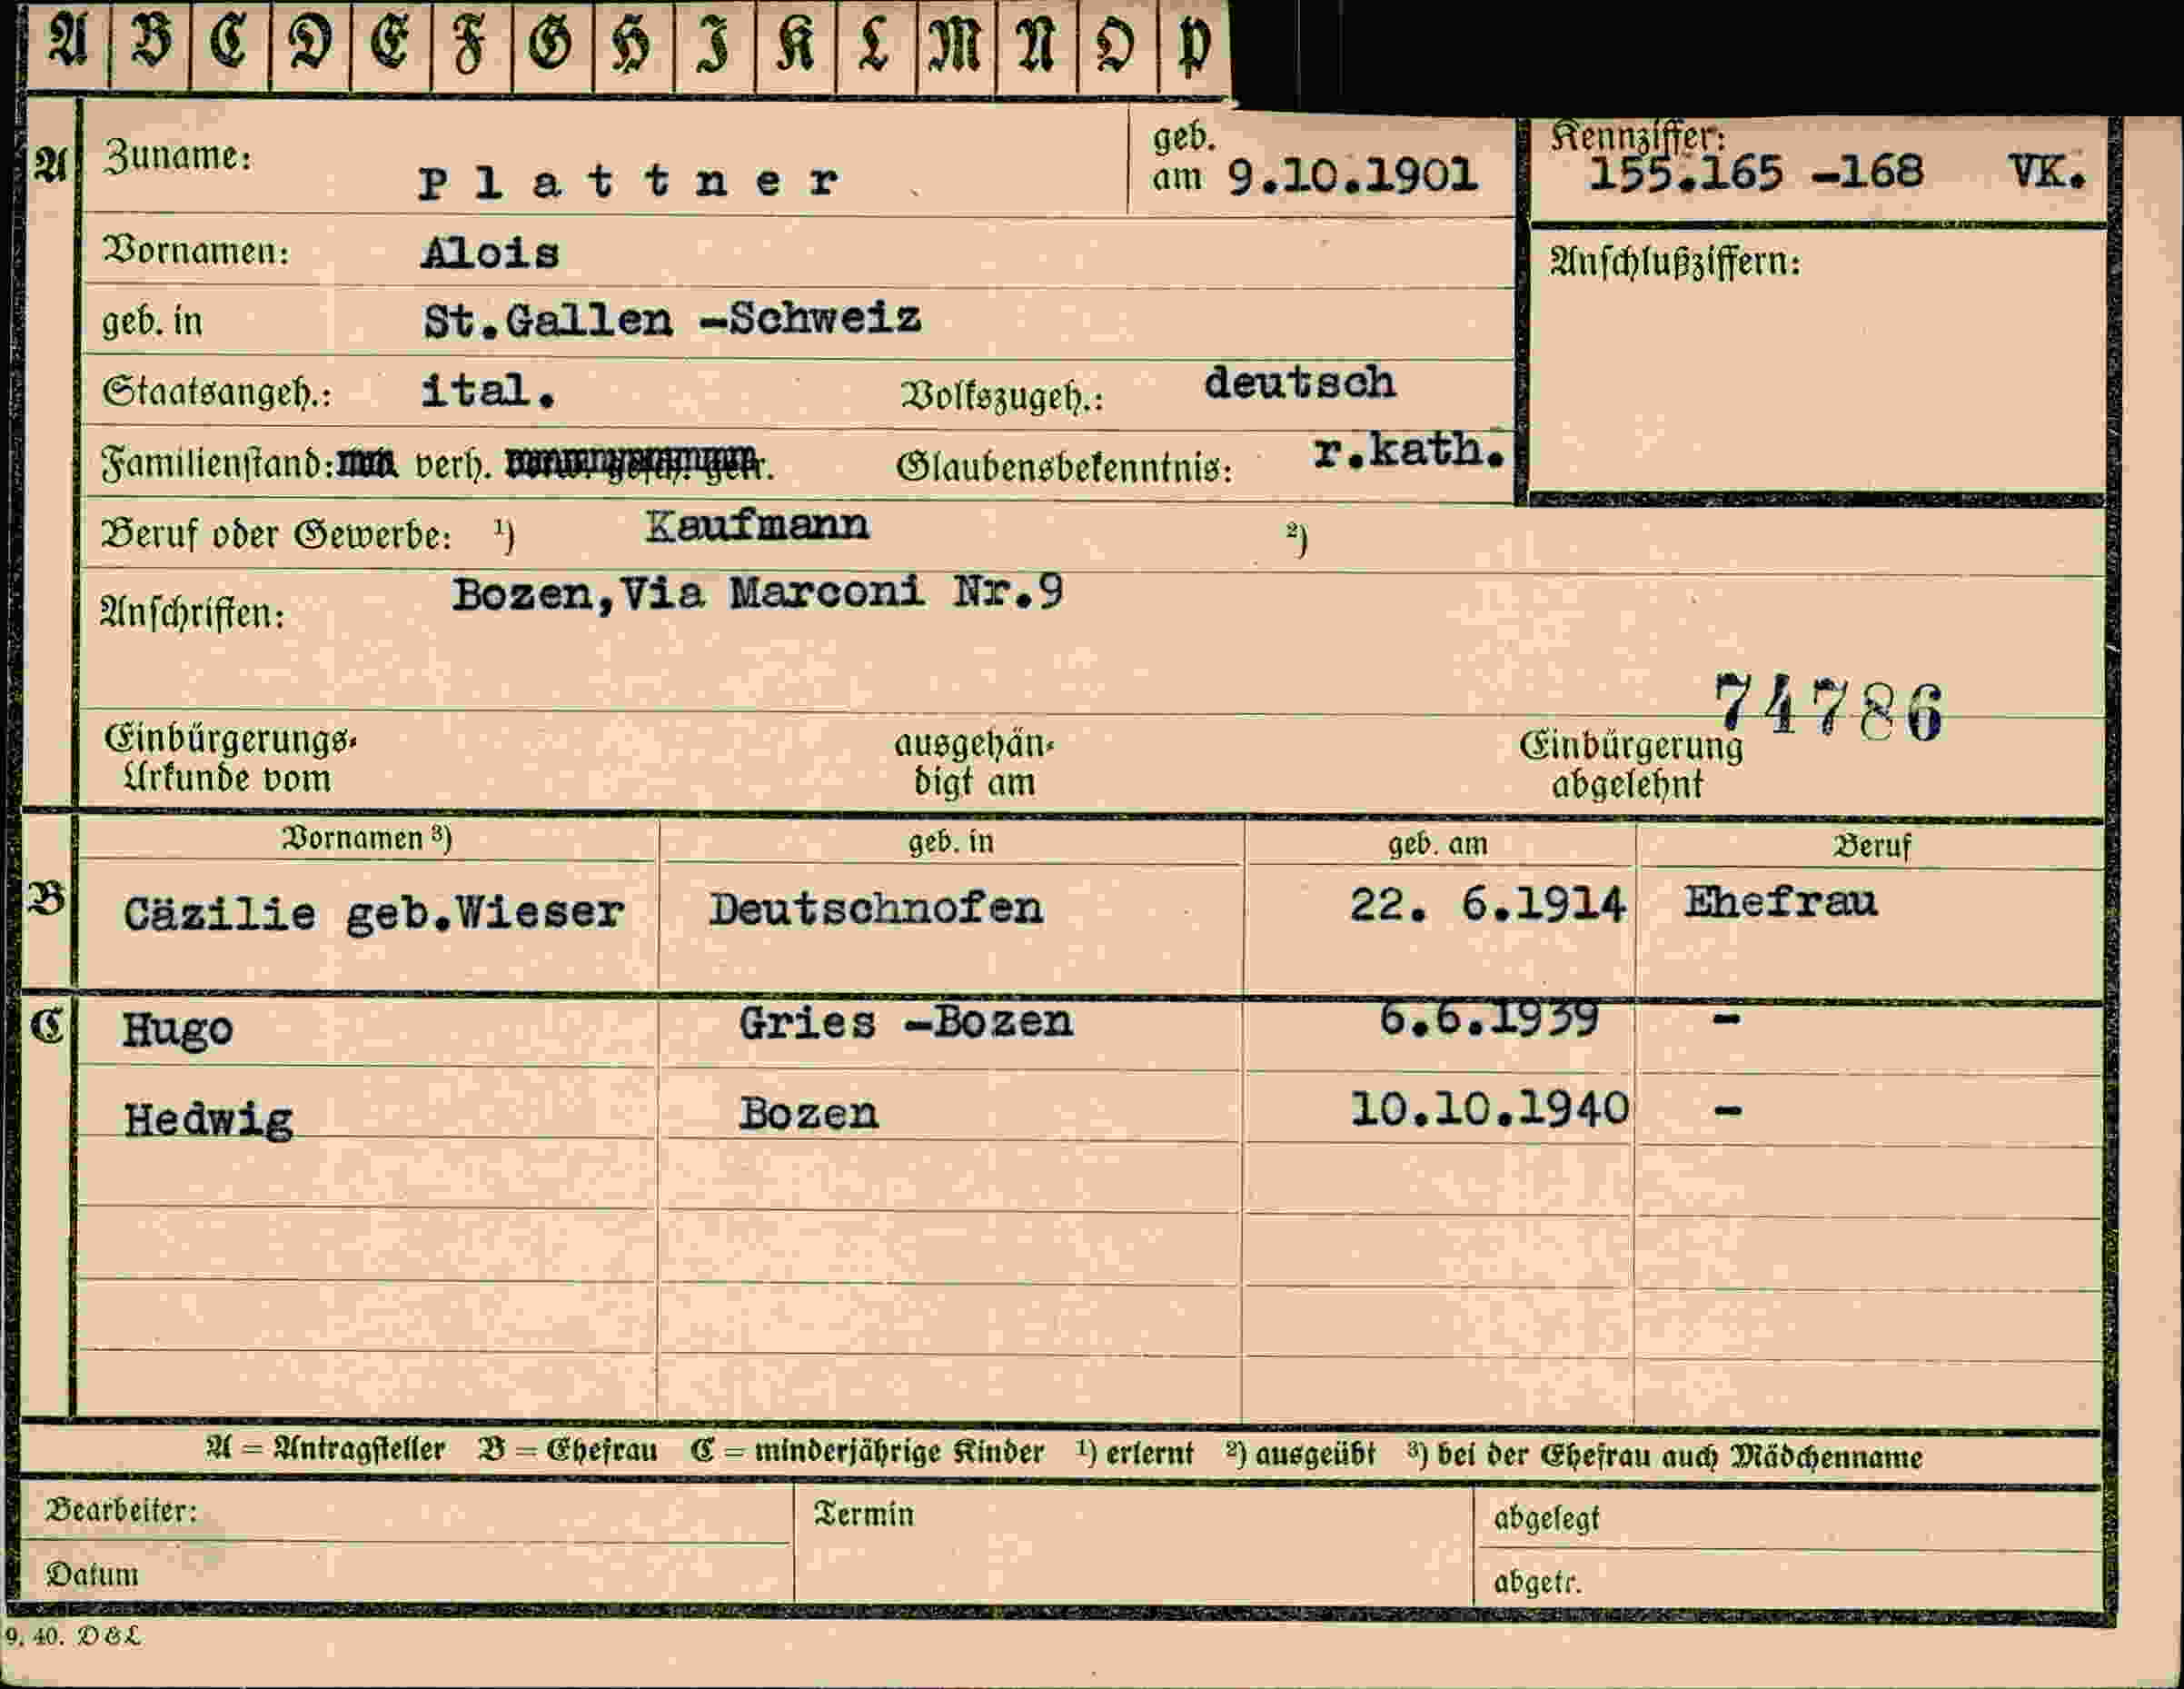 A B C D E F G H I K L M N O P
A Zuname: Plattner geb. am 9.10.1901 Kennziffer: 155.165 -168 VK.
Vornamen: Alois Anschlußziffern:
geb. in St.Gallen -Schweiz
Staatsangeh.: ital. Volkszugeh.: deutsch
Familienstand: verh. Glaubensbekenntnis: r.kath.
Beruf oder Gewerbe: ¹) Kaufmann ²)
Anschriften: Bozen,Via Marconi Nr.9
74786
Einbürgerungs- ausgehän- Einbürgerung
Urkunde vom digt am abgelehnt
Vornamen ³) geb. in geb. am Beruf
B Cäzilie geb.Wieser Deutschnofen 22. 6.1914 Ehefrau
C Hugo Gries -Bozen 6.6.1939 -
Hedwig Bozen 10.10.1940 -
A = Antragsteller B = Ehefrau C = minderjährige Kinder ¹) erlernt ²) ausgeübt ³) bei der Ehefrau auch Mädchenname
Bearbeiter: Termin abgelegt
Datum abgetr.
9. 40. D&L